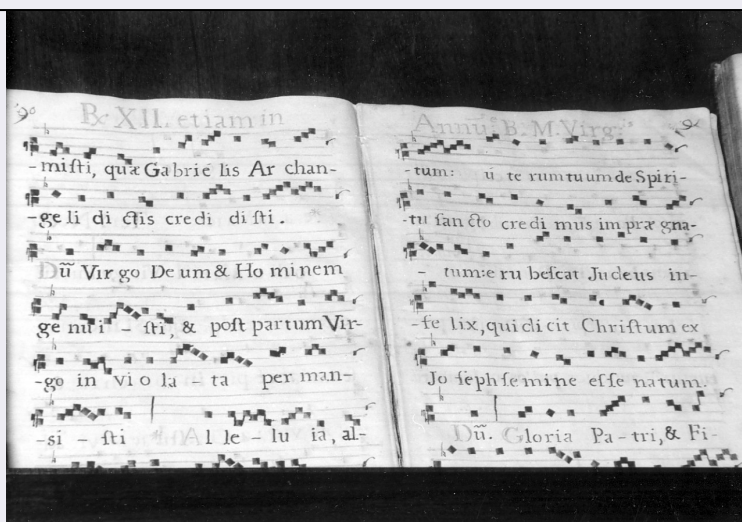 90
B. XII. etiam in
-misti, quæ Gabrie lis Ar chan-
-ge li di ctis credi di sti.
Dũ Virgo De um & Ho minem
ge nu i - sti, & post partum Vir-
-go in vi o la - ta per man-
-si - sti Al le - lu ia, al-
Annũ. B. M. Virg:is
-tum: u te rum tu um de Spiri-
-tu san cto credi mus im præ gna-
- tum: e ru bescat Judeus in-
-fe lix, qui di cit Christum ex
Jo seph se mine es se natum.
Dũ. Gloria Pa - tri, & Fi-